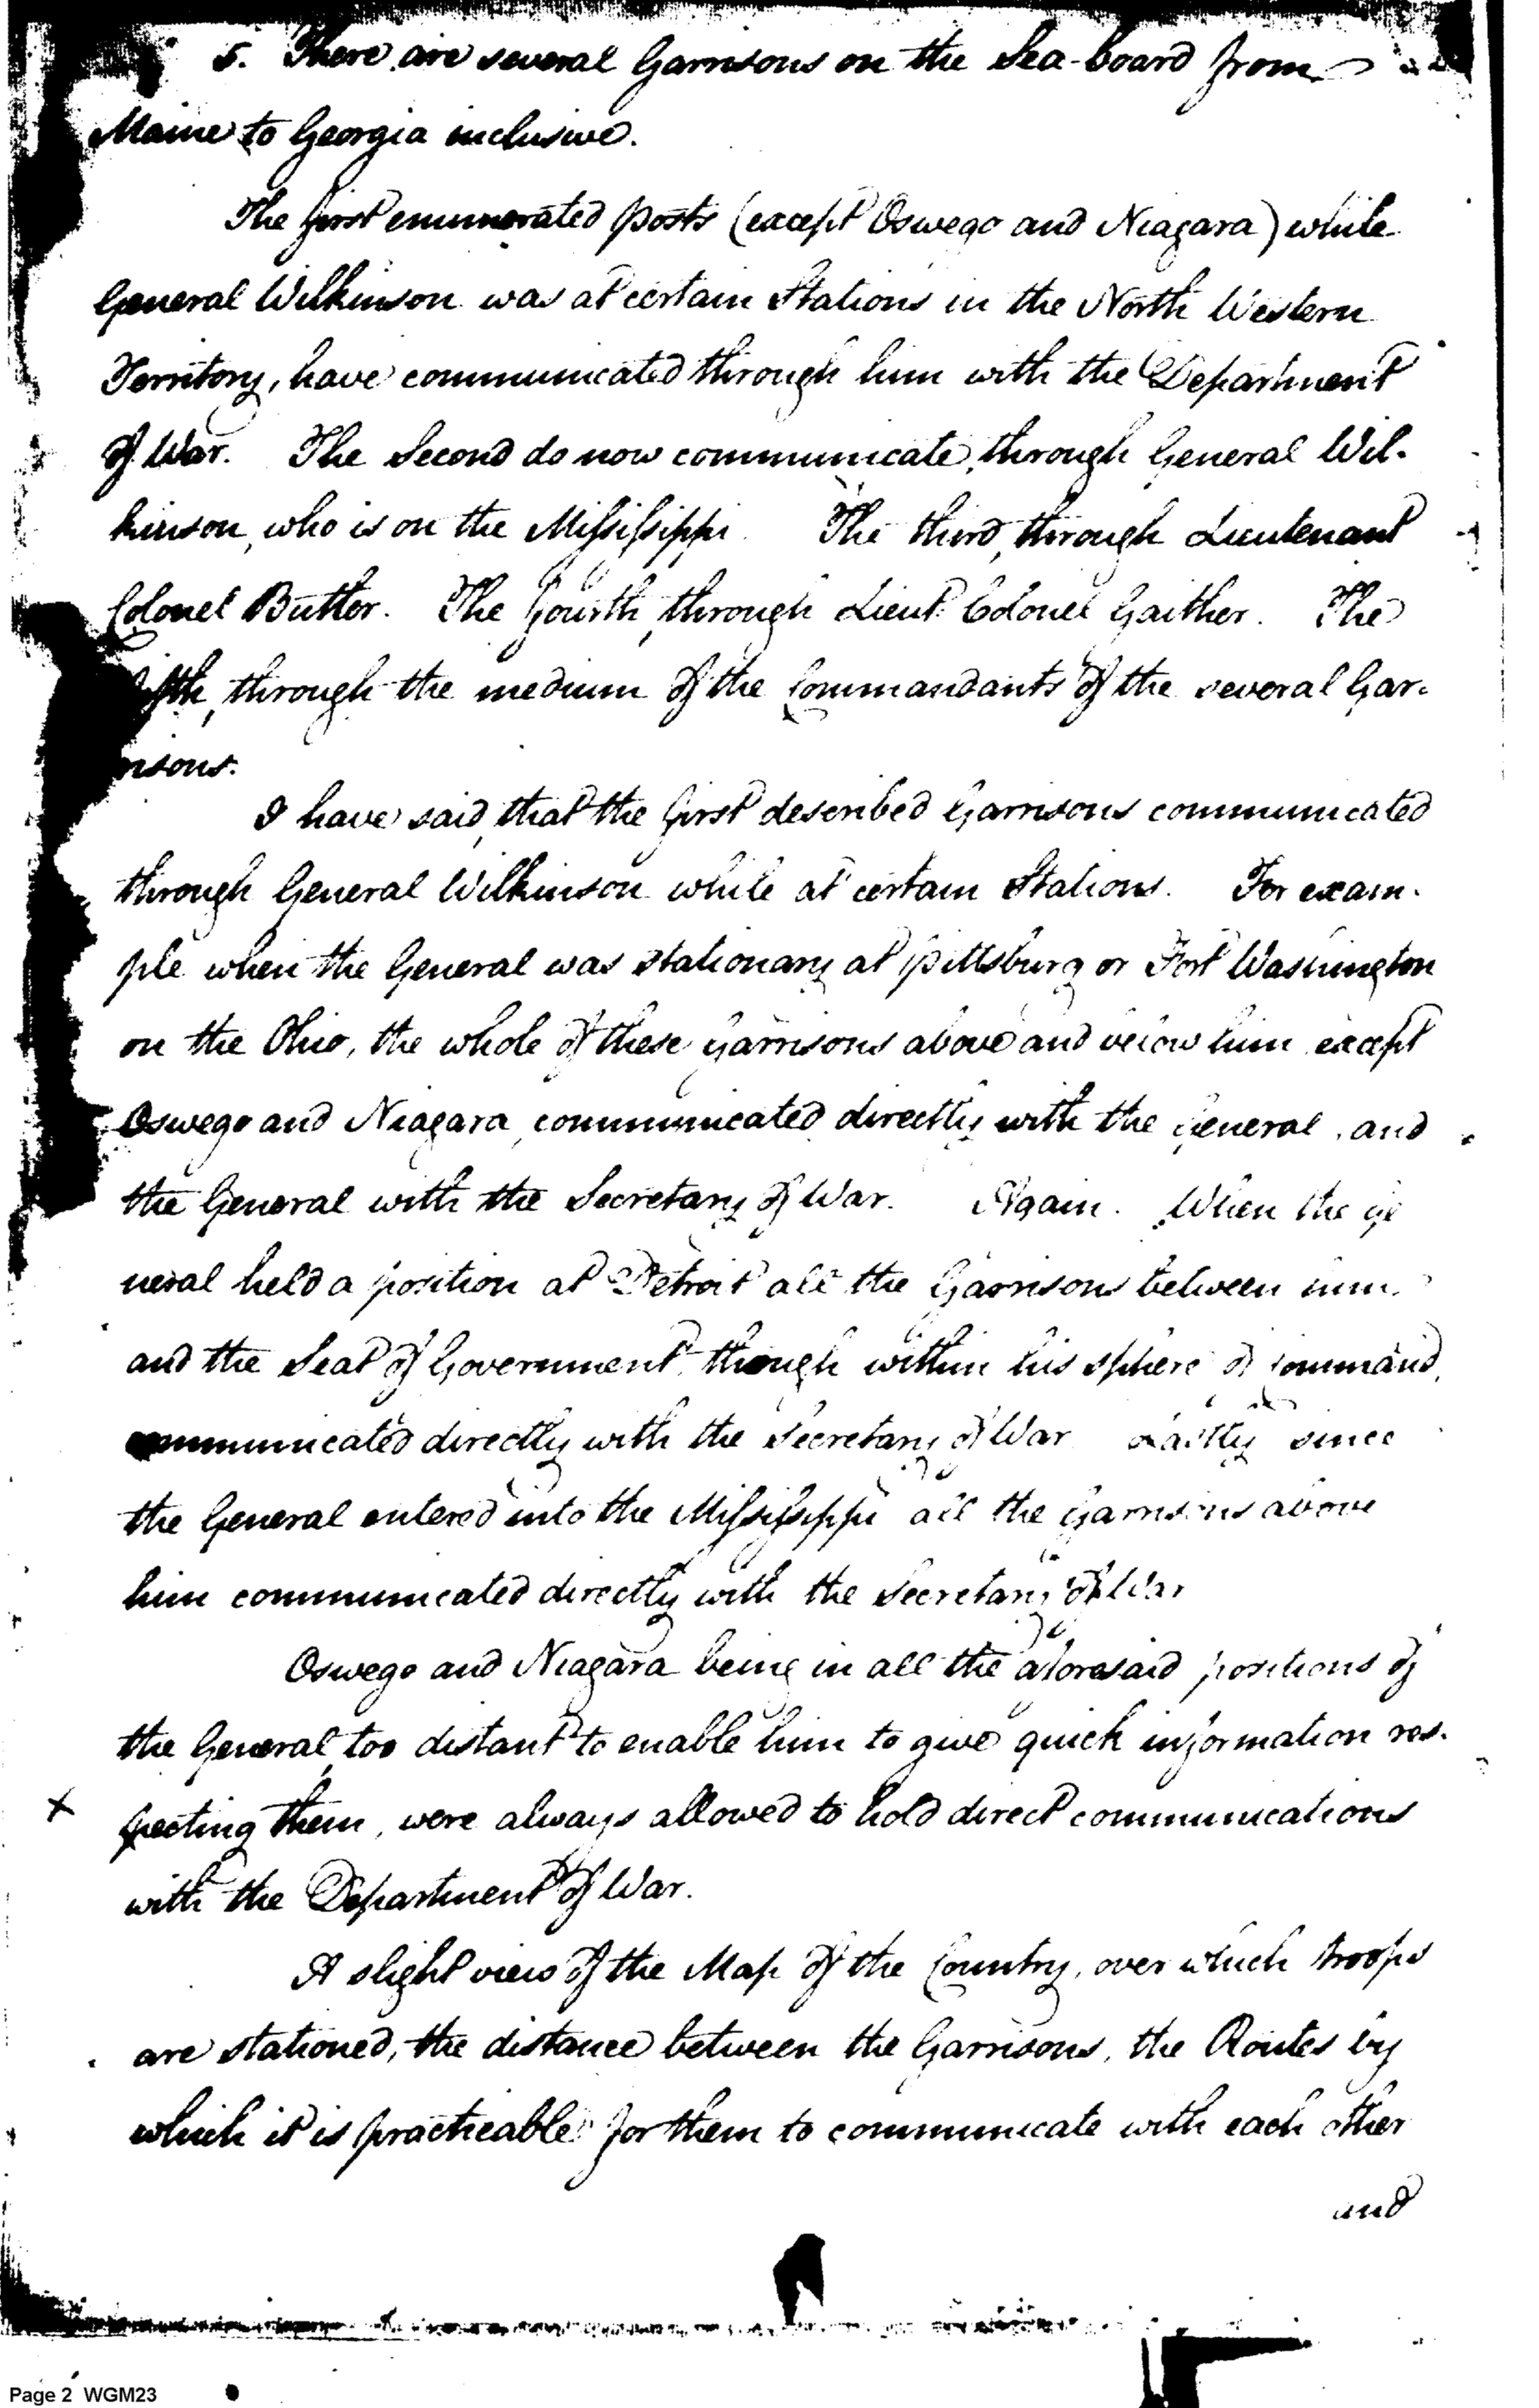 5. There are several Garrisons on the Sea-board from
Maine to Georgia inclusive.
The first enumerated posts (except Oswego and Niagara) while
General Wilkinson was at certain Stations in the North Western
Territory, have communicated through him with the Department
of War. The Second do now communicate, through General Wil-
kinson, who is on the Mississippi. The third, through Lieutenant
Colonel Butler. The fourth, through Lieut. Colonel Gaither. The
fifth, through the medium of the Commandants of the several Gar-
risons.
I have said, that the first described Garrisons communicated
through General Wilkinson while at certain Stations. For exam-
ple when the General was stationary at pittsburg or Fort Washington
on the Ohio, the whole of these Garrisons above and below him except
Oswego and Niagara, communicated directly with the General, and
the General with the Secretary of War. Again. When the Ge
neral held a position at Detroit all the Garrisons between him
and the Seat of Government, though within his sphere of command,
communicated directly with the Secretary of War Lastly since
the General entered into the Mississippi all the Garrisons above
him communicated directly with the Secretary of War
Oswego and Niagara being in all the aforesaid positions of
the General, too distant to enable him to give quick information res-
x pecting them, were always allowed to hold direct communications
with the Department of War.
A slight view of the Map of the Country, over which troops
are stationed, the distance between the Garrisons, the Routes by
which it is practicable for them to communicate with each other
and
Page 2 WGM23